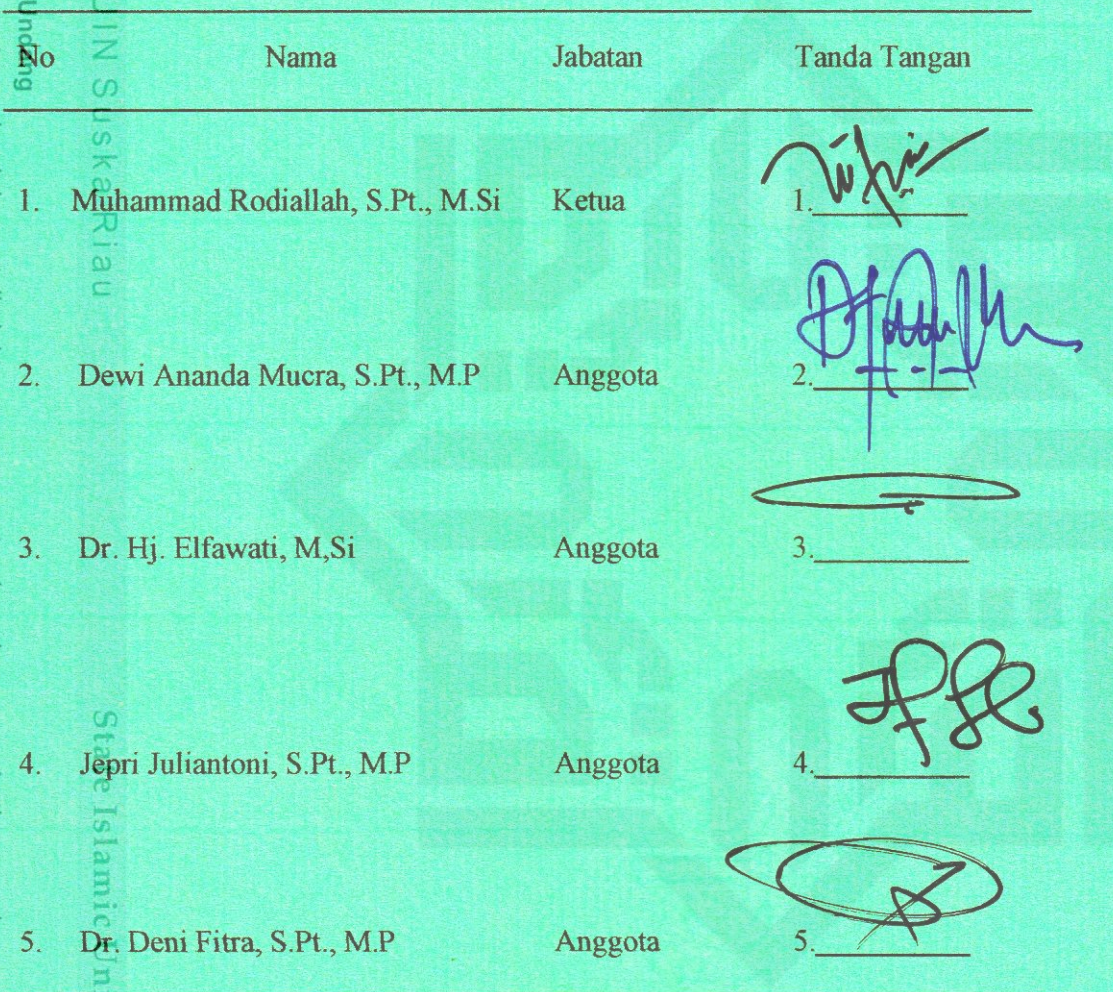 No Nama Jabatan Tanda Tangan
1. Muhammad Rodiallah, S.Pt., M.Si Ketua 1.
2. Dewi Ananda Mucra, S.Pt., M.P Anggota 2.
3. Dr. Hj. Elfawati, M,Si Anggota 3.
4. Jepri Juliantoni, S.Pt., M.P Anggota 4.
5. Dr. Deni Fitra, S.Pt., M.P Anggota 5.
UIN Suska Riau
State Islamic Un
Undang